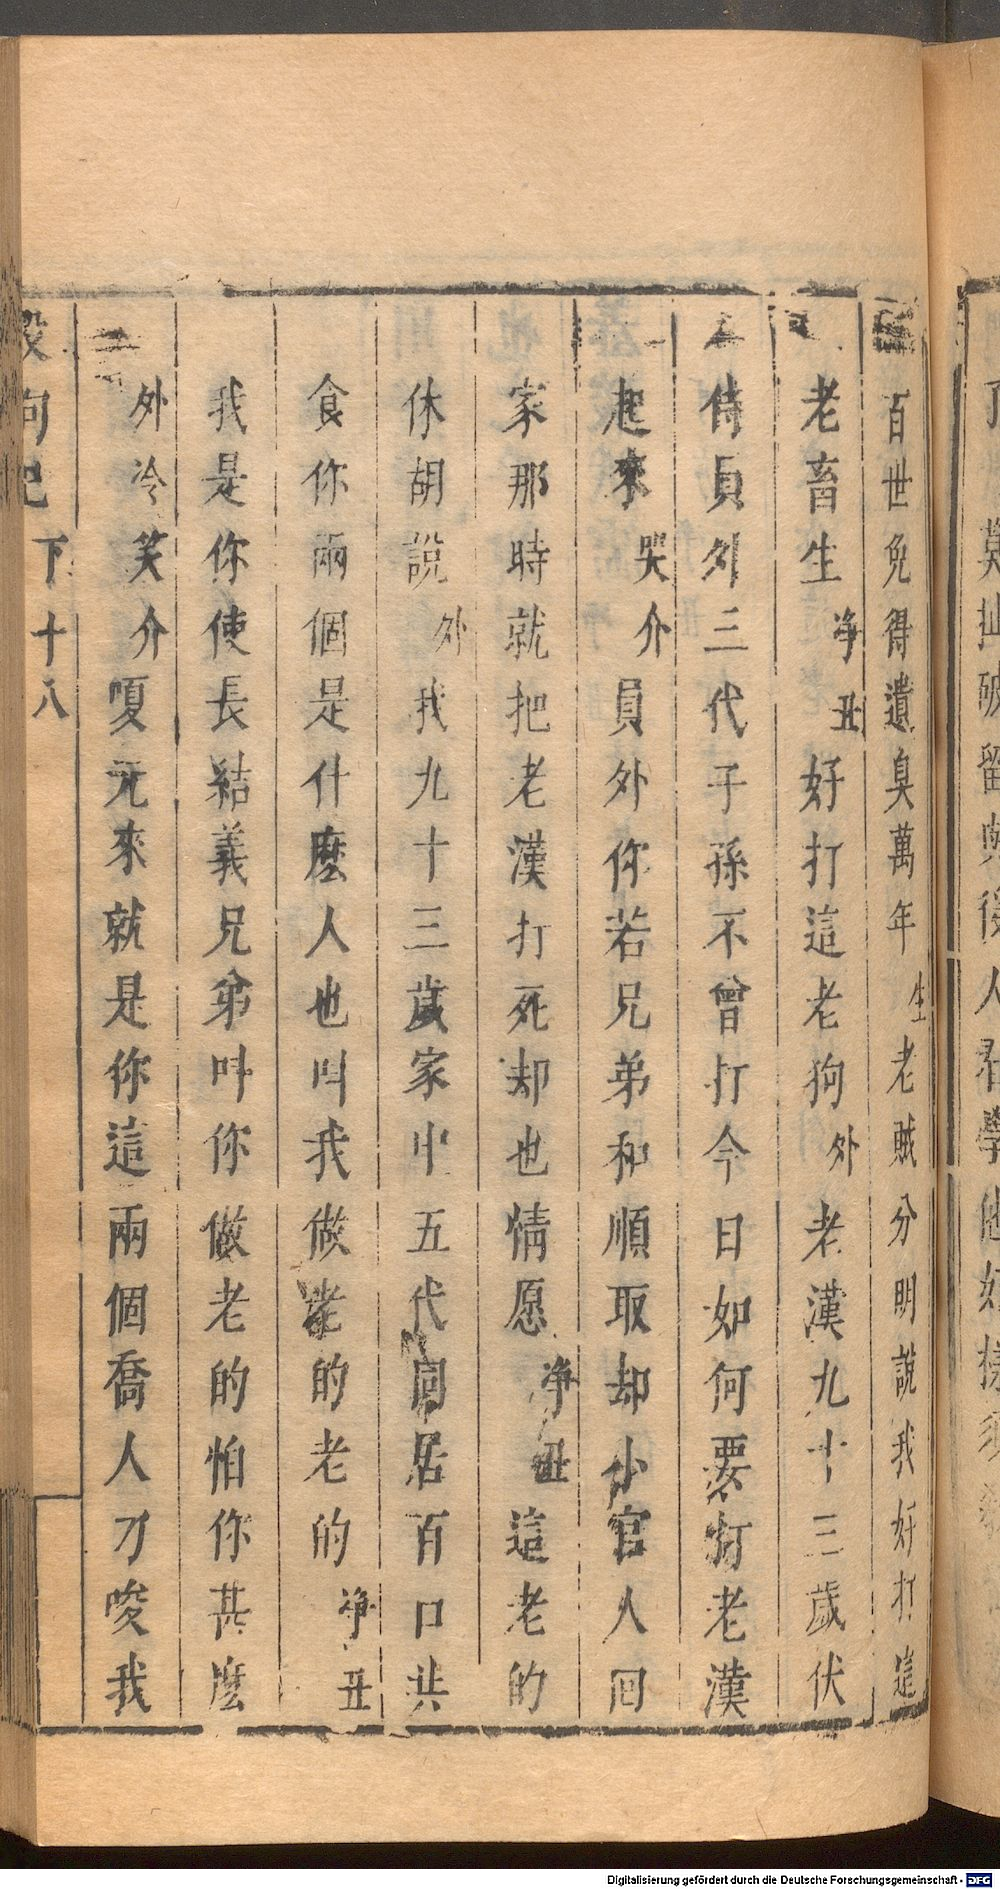 百世免得遺臭萬年生老賊分明說我好打這
老畜生净丑好打這老狗外老漢九十三歲伏
侍員外三代子孫不曾打今日如何要打老漢
起來哭介員外你若兄弟和順取却小官人回
家那時就把老漢打死却也情愿净丑這老的
休胡說外我九十三歲家中五代同居百口共
食你兩個是什麽人也叫我做老的老的净丑
我是你使長結義兄弟叫你做老的怕你甚麽
外冷笑介嗄元來就是你這兩個喬人刁唆我
殺狗記 下十八
Digitalisierung gefördert durch die Deutsche Forschungsgemeinschaft - DFG